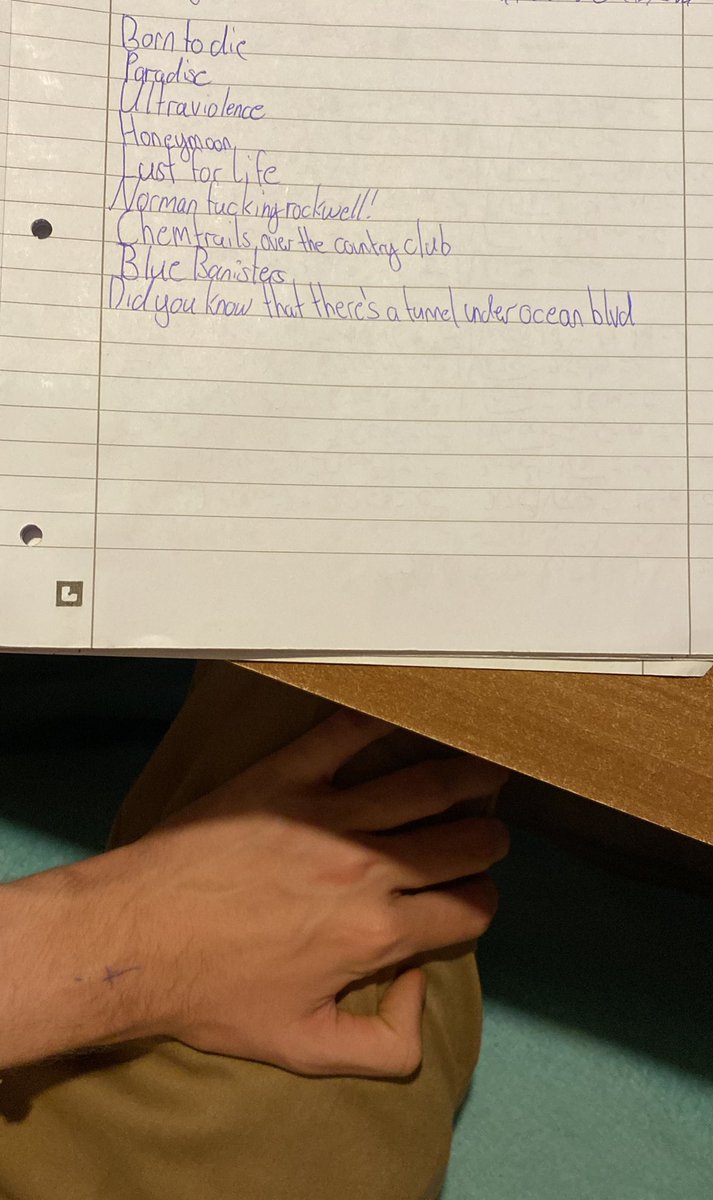 Born to die
Paradise
Ultraviolence
Honeymoon
Lust for Life
Norman fucking rockwell!
Chemtrails over the country club
Blue Banisters
Did you know that there's a tunnel under ocean blvd